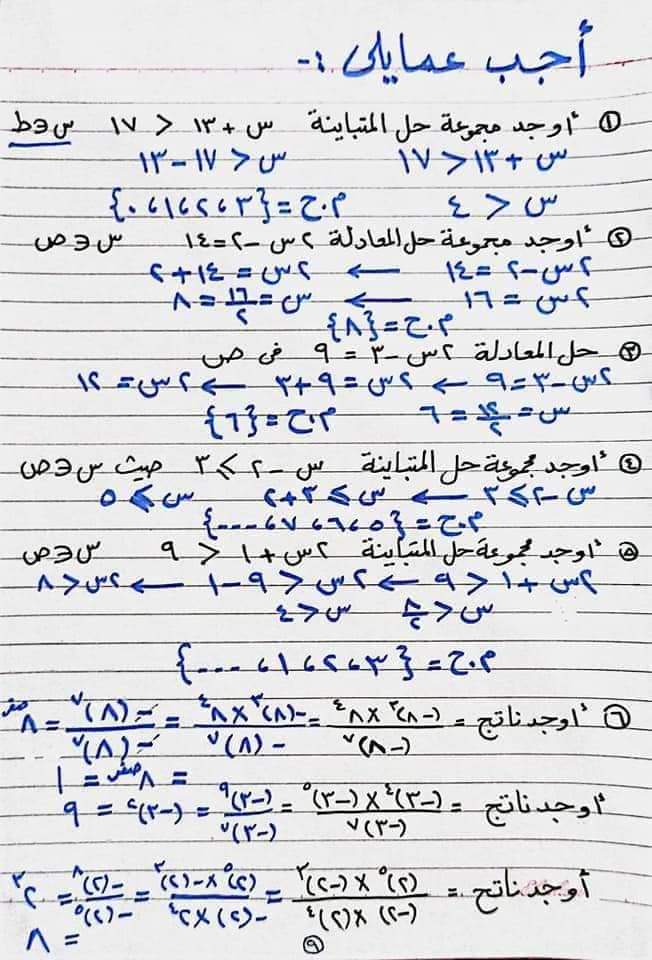 أجب عمايلى :-
① أوجد مجموعة حل المتباينة س + ١٣ < ١٧ س ∋ ط
س + ١٣ < ١٧ س < ١٧ - ١٣
س < ٤ م.ح = {٣، ٢، ١، ٠}
② أوجد مجموعة حل المعادلة ٢س - ٢ = ١٤ س ∋ ص
٢س - ٢ = ١٤ ← ٢س = ١٤ + ٢
٢س = ١٦ ← س = ١٦/٢ = ٨
م.ح = {٨}
③ حل المعادلة ٢س - ٣ = ٩ فى ص
٢س - ٣ = ٩ ← ٢س = ٩ + ٣ ← ٢س = ١٢
س = ١٢/٢ = ٦ م.ح = {٦}
④ أوجد مجموعة حل المتباينة س - ٢ ≥ ٣ حيث س ∋ ص
س - ٢ ≥ ٣ ← س ≥ ٣ + ٢ س ≥ ٥
م.ح = {٥، ٦، ٧، ...}
⑤ أوجد مجموعة حل المتباينة ٢س + ١ < ٩ س ∋ ص
٢س + ١ < ٩ ← ٢س < ٩ - ١ ← ٢س < ٨
س < ٨/٢ س < ٤
م.ح = {٣، ٢، ١، ...}
⑥ أوجد ناتج = (-٨)^٣ × ٨^٤ / (-٨)^٧ = -(٨)^٣ × ٨^٤ / -(٨)^٧ = -(٨)^٧ / -(٨)^٧ = ٨^صفر
= ٨^صفر = ١
أوجد ناتج = (-٣)^٤ × (-٣)^٥ / (-٣)^٧ = (-٣)^٩ / (-٣)^٧ = (-٣)^٢ = ٩
أوجد ناتج = (٢)^٥ × (-٢)^٣ / (-٢) × (٢)^٤ = (٢)^٥ × -(٢)^٣ / -(٢) × ٢^٤ = -(٢)^٨ / -(٢)^٥ = ٢^٣
= ٨
⑨